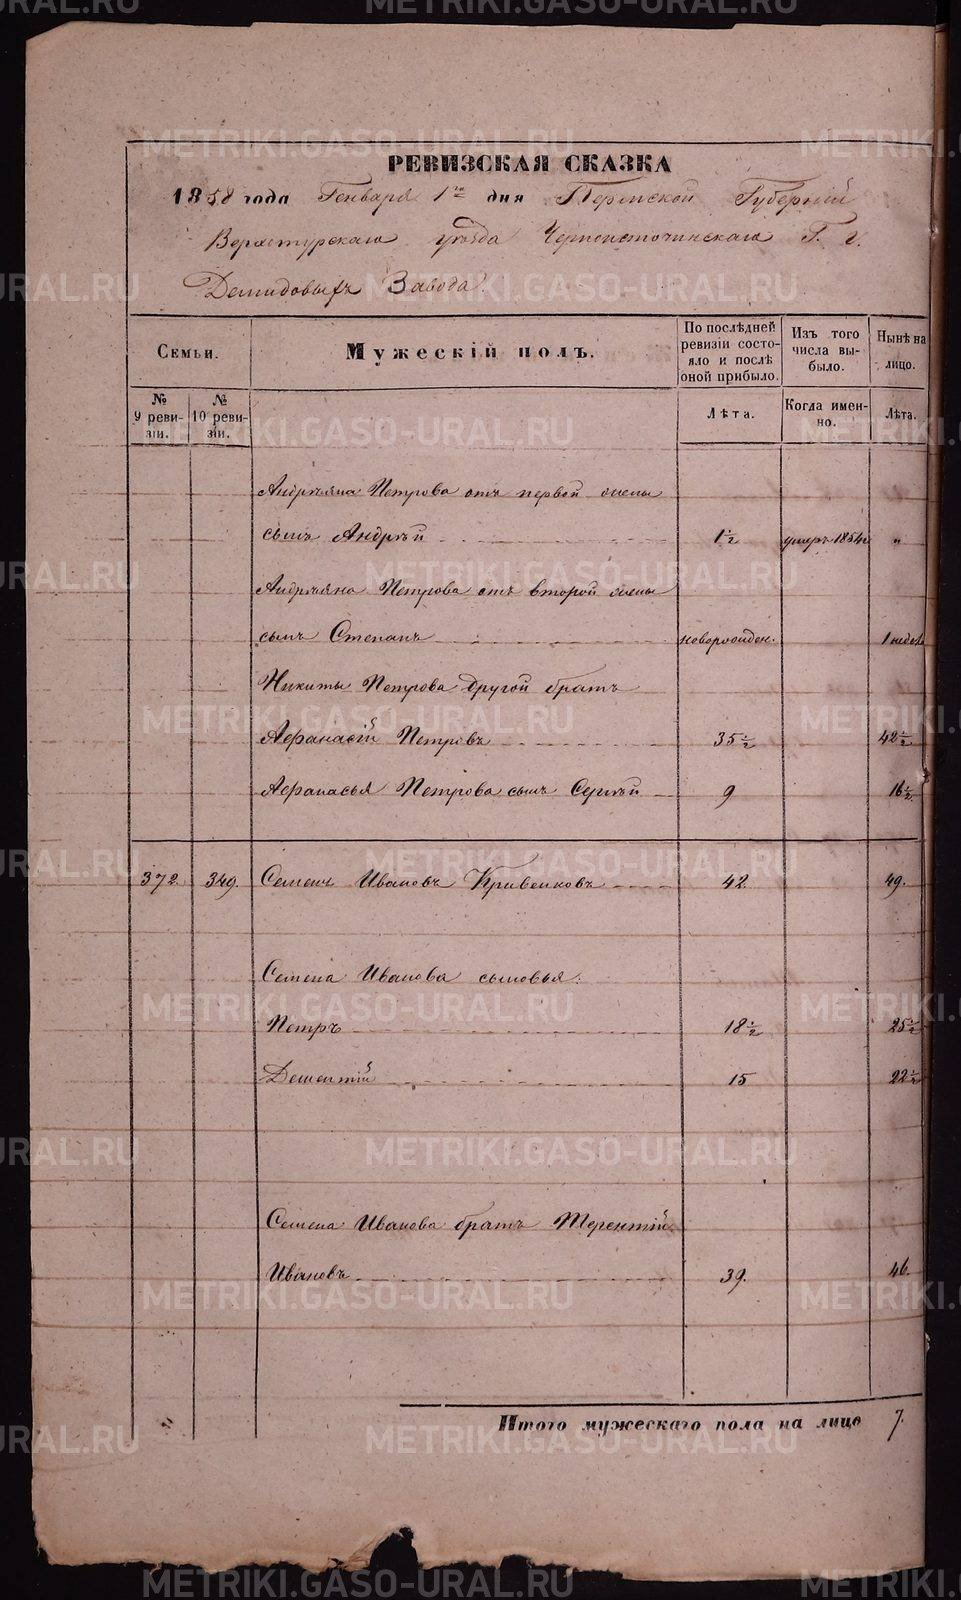 РЕВИЗСКАЯ СКАЗКА
1858 года Генваря 1го дня Пермской Губерніи
Верхотурскаго уѣзда Черноисточинскаго Г. г.
Демидовыхъ Завода.
Семьи.
Мужескій полъ.
По послѣдней ревизіи состояло и послѣ оной прибыло.
Изъ того числа выбыло.
Нынѣ на лицо.
№ 9 ревизіи.
№ 10 ревизіи.
Лѣта.
Когда именно.
Лѣта.
Андреяна Петрова отъ первой жены
сынъ Андрей 1½ умеръ 1854 „
Андреяна Петрова отъ второй жены
сынъ Степанъ новорожден. 1 недел
Никиты Петрова другой братъ
Афанасій Петровъ 35½ 42½
Афанасья Петрова сынъ Сергѣй 9 16½
372. 349. Семенъ Ивановъ Кривенковъ 42. 49.
Семена Иванова сыновья:
Петръ 18½ 25½
Дементій 15 22½
Семена Иванова братъ Терентій
Ивановъ 39. 46.
Итого мужескаго пола на лицо 7.
METRIKI.GASO-URAL.RU